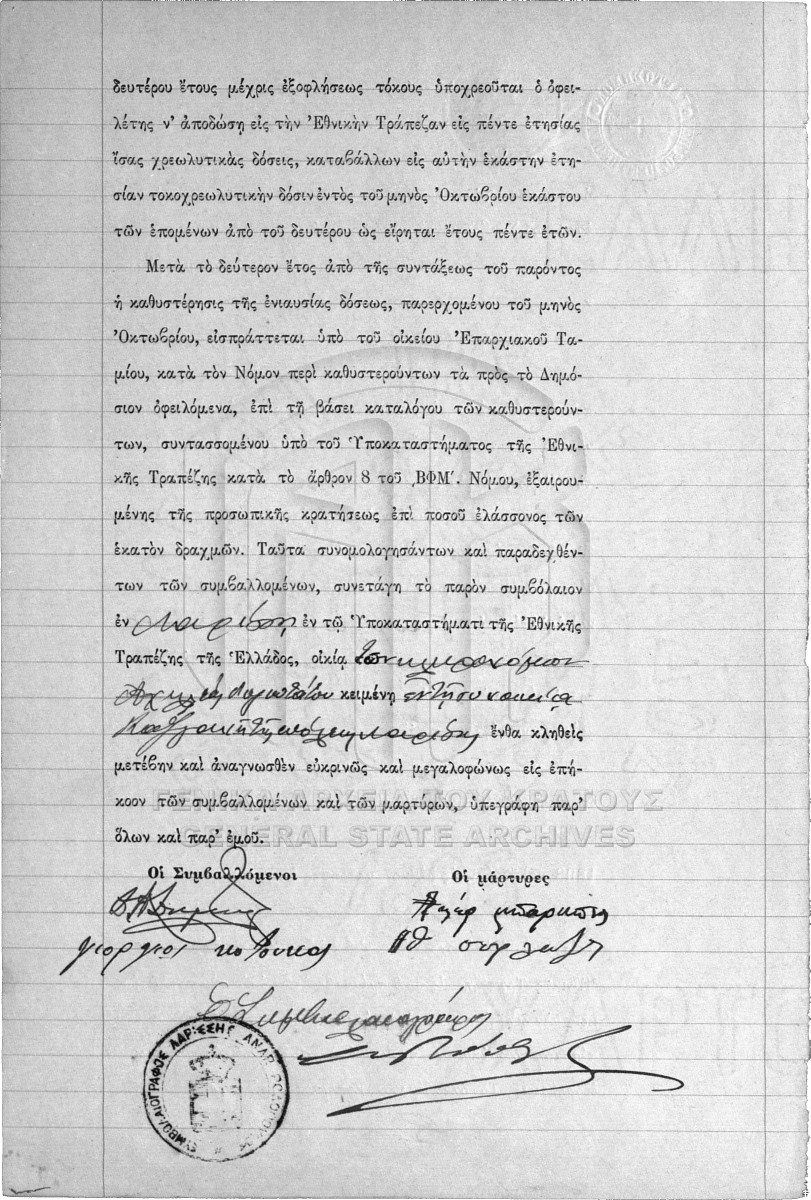 δευτέρου ἔτους μέχρις ἐξοφλήσεως τόκους ὑποχρεοῦται ὁ ὀφει-
λέτης ν' ἀποδώσῃ εἰς τὴν Ἐθνικὴν Τράπεζαν εἰς πέντε ἐτησίας
ἴσας χρεωλυτικὰς δόσεις, καταβάλλων εἰς αὐτὴν ἑκάστην ἐτη-
σίαν τοκοχρεωλυτικὴν δόσιν ἐντὸς τοῦ μηνὸς Ὀκτωβρίου ἑκάστου
τῶν ἑπομένων ἀπὸ τοῦ δευτέρου ὡς εἴρηται ἔτους πέντε ἐτῶν.
Μετὰ τὸ δεύτερον ἔτος ἀπὸ τῆς συντάξεως τοῦ παρόντος
ἡ καθυστέρησις τῆς ἐνιαυσίας δόσεως, παρερχομένου τοῦ μηνὸς
Ὀκτωβρίου, εἰσπράττεται ὑπὸ τοῦ οἰκείου Ἐπαρχιακοῦ Τα-
μίου, κατὰ τὸν Νόμον περὶ καθυστερούντων τὰ πρὸς τὸ Δημό-
σιον ὀφειλόμενα, ἐπὶ τῇ βάσει καταλόγου τῶν καθυστερούν-
των, συντασσομένου ὑπὸ τοῦ Ὑποκαταστήματος τῆς Ἐθνι-
κῆς Τραπέζης κατὰ τὸ ἄρθρον 8 τοῦ ͵ΒΦΜ΄. Νόμου, ἐξαιρου-
μένης τῆς προσωπικῆς κρατήσεως ἐπὶ ποσοῦ ἐλάσσονος τῶν
ἑκατὸν δραχμῶν. Ταῦτα συνομολογησάντων καὶ παραδεχθέν-
των τῶν συμβαλλομένων, συνετάγη τὸ παρὸν συμβόλαιον
ἐν Λαρίσῃ ἐν τῷ Ὑποκαταστήματι τῆς Ἐθνικῆς
Τραπέζης τῆς Ἑλλάδος, οἰκίᾳ τῶν κληρονόμων
κειμένῃ ἐν τῇ συνοικίᾳ
τῆς πόλεως Λαρίσης ἔνθα κληθεὶς
μετέβην καὶ ἀναγνωσθὲν εὐκρινῶς καὶ μεγαλοφώνως εἰς ἐπή-
κοον τῶν συμβαλλομένων καὶ τῶν μαρτύρων, ὑπεγράφη παρ'
ὅλων καὶ παρ' ἐμοῦ.
ΓΕΝΙΚΑ ΑΡΧΕΙΑ ΤΟΥ ΚΡΑΤΟΥΣ
GENERAL STATE ARCHIVES
Οἱ Συμβαλλόμενοι
Οἱ μάρτυρες
Ὁ Συμβολαιογράφος
ΣΥΜΒΟΛΑΙΟΓΡΑΦΟΣ ΛΑΡΙΣΣΗΣ